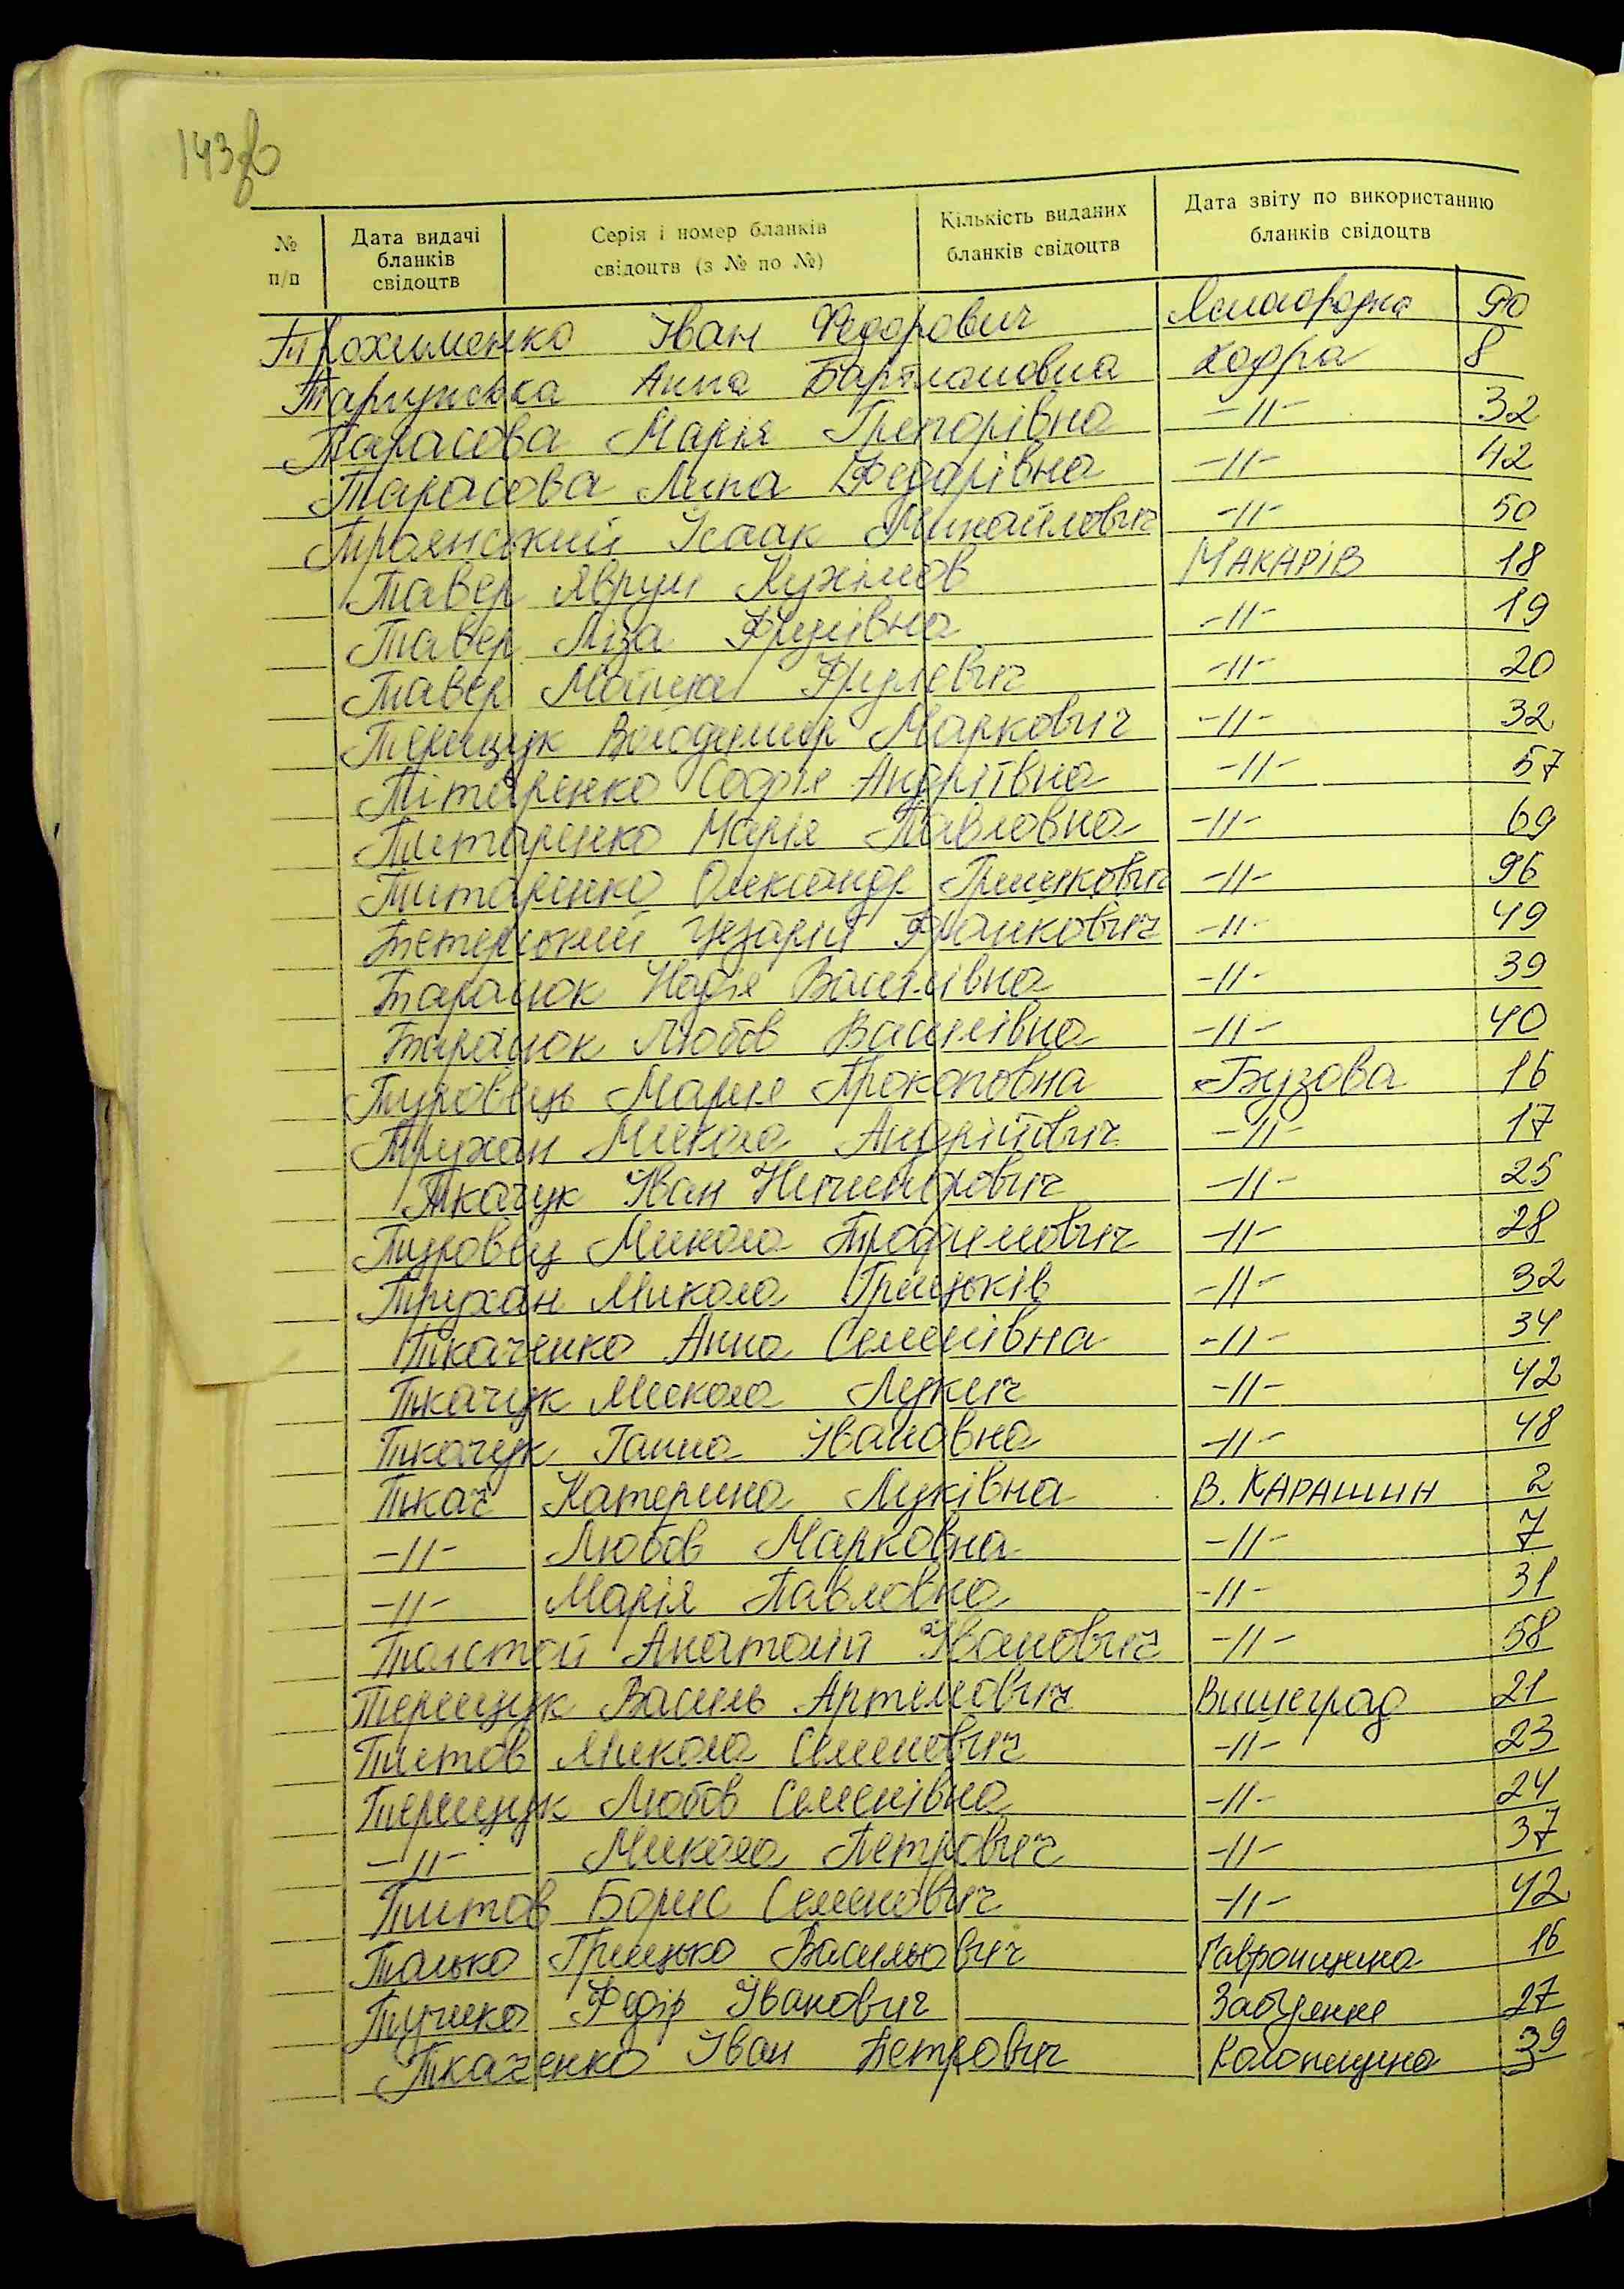 143зв
№ п/п Дата видачі бланків свідоцтв Серія і номер бланків свідоцтв (з № по №) Кількість виданих бланків свідоцтв Дата звіту по використанню бланків свідоцтв
Трохименко Іван Федорович 90
Таргунська Анна Бартламовна Кодра 8
Тарасова Марія Григорівна -//- 32
Тарасова Лина Федорівна -//- 42
Троянський Ісаак Михайлович -//- 50
Тавер Яврум Нухімов Макарів 18
Тавер Ліза Фрумівна -//- 19
Тавер -//- 20
Терещук Володимир Маркович -//- 32
Тітаренко Софія Андріївна -//- 57
Титаренко Марія Павловна -//- 69
Титаренко Олександр -//- 96
Тетерський Цезарій Франкович -//- 49
Тарасюк Надія Василівна -//- 39
Тарасюк Любов Василівна -//- 40
Туровець Мария Прокоповна Бузова 16
Трухан Микола Андрійович -//- 17
Ткачук Іван Ничипорович -//- 25
Туровец Микола Трофимович -//- 28
Трухан Микола Грицьків -//- 32
Ткаченко Анна Семенівна -//- 34
Ткачук Микола Лукич -//- 42
Ткачук Ганна Івановна -//- 48
Ткач Катерина Луківна В. Карашин 2
-//- Любов Марковна -//- 7
-//- Марія Павловна -//- 31
Толстой Анатолій Іванович -//- 58
Терещук Василь Артемович Вишеград 21
Титов Микола Семенович -//- 23
Терещук Любов Семенівна -//- 24
-//- Микола Петрович -//- 37
Титов Борис Семенович -//- 42
Талько Грицько Васильович Гавронщина 16
Федір Іванович Забуяння 27
Ткаченко Іван Петрович Колонщина 39